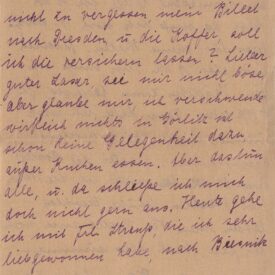 nicht zu vergessen mein Billet
nach Dresden, u. die Koffer, soll
ich die versichern lassen? Lieber
guter Laser, sei mir nicht böse,
aber glaube mir ich verschwende
wirklich nichts in Görlitz ist
schon keine Gelegenheit dazu,
außer Kuchen essen. Aber das tun
alle, u. da schließe ich mich
doch nicht gern aus. Heute gehe
ich mit Frl. Straus, die ich sehr
liebgewonnen habe, nach